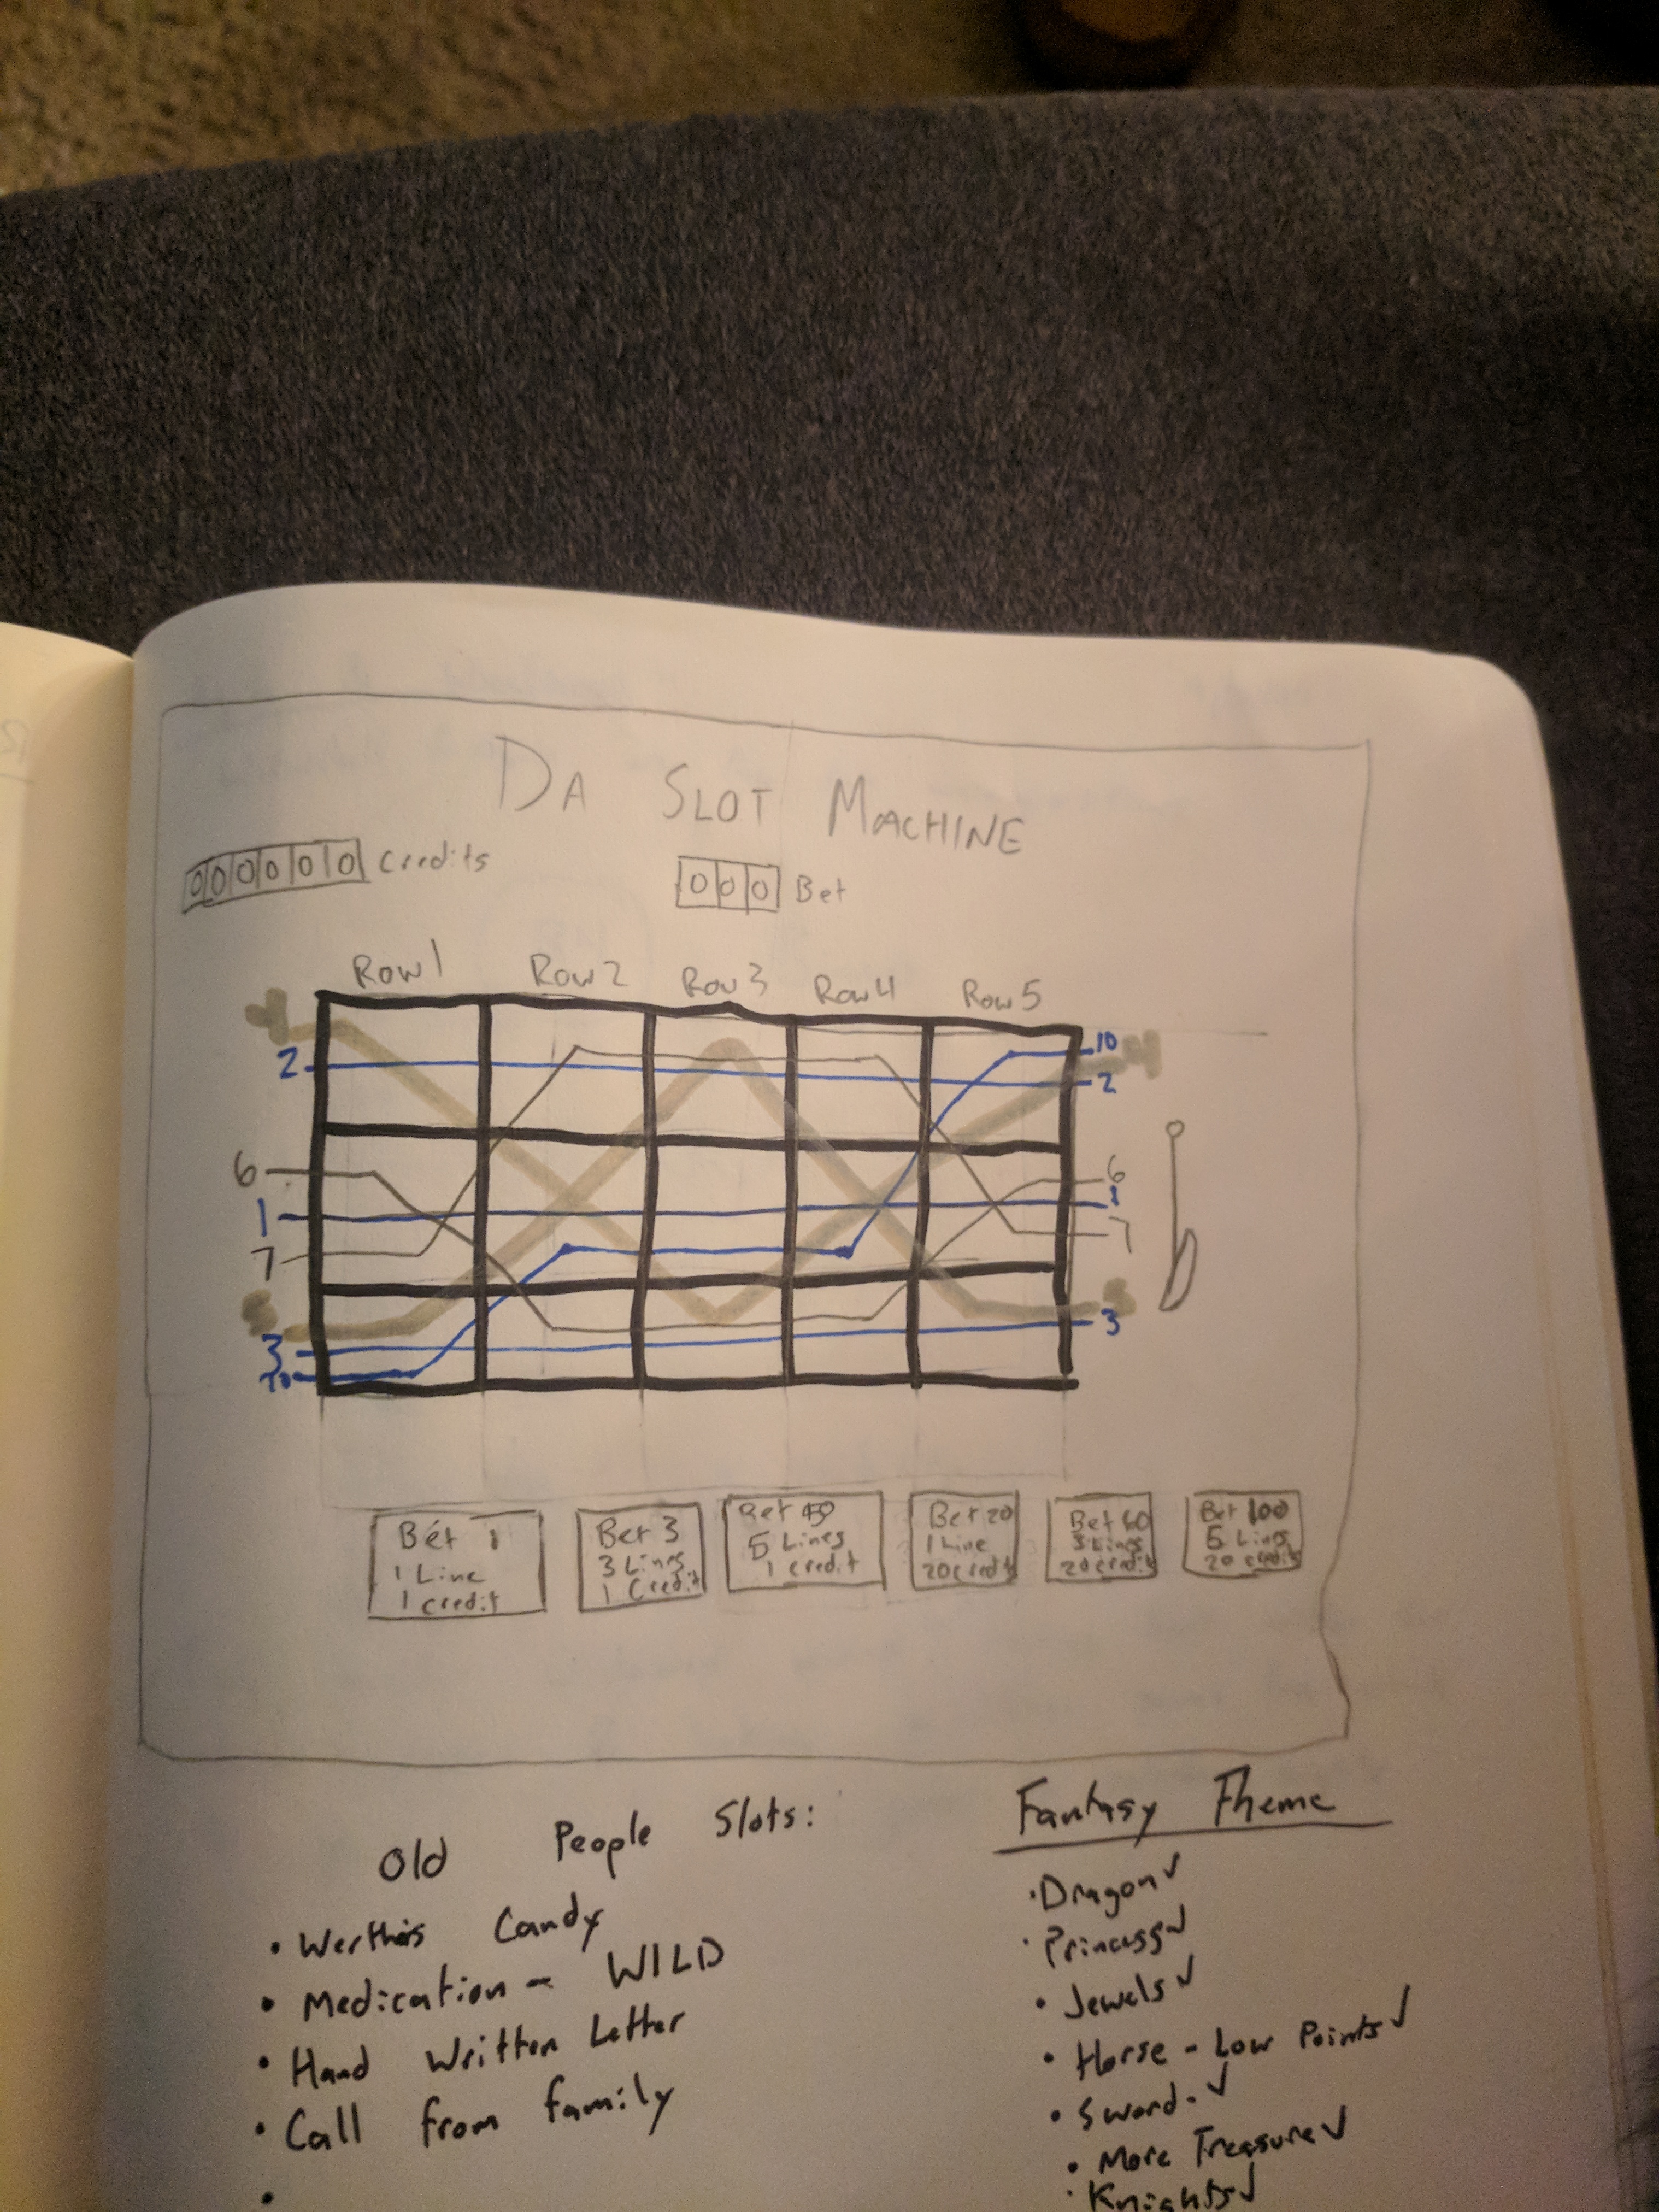 DA SLOT MACHINE
000000 Credits
000 Bet
Row 1 Row 2 Row 3 Row 4 Row 5
4
2
6
1
7
5
3
10
10
4
2
6
1
7
5
3
Bet 1
1 Line
1 credit
Bet 3
3 Lines
1 Credit
Bet
5 Lines
1 credit
Bet 20
1 Line
20 credits
Bet 60
3 Lines
20 credits
Bet 100
5 Lines
20 credits
Old People Slots:
• Werther's Candy
• Medication - WILD
• Hand Written Letter
• Call from family
•
Fantasy Theme
• Dragon ✓
• Princess ✓
• Jewels ✓
• Horse - Low Points ✓
• Sword - ✓
• More Treasure ✓
• Knights ✓